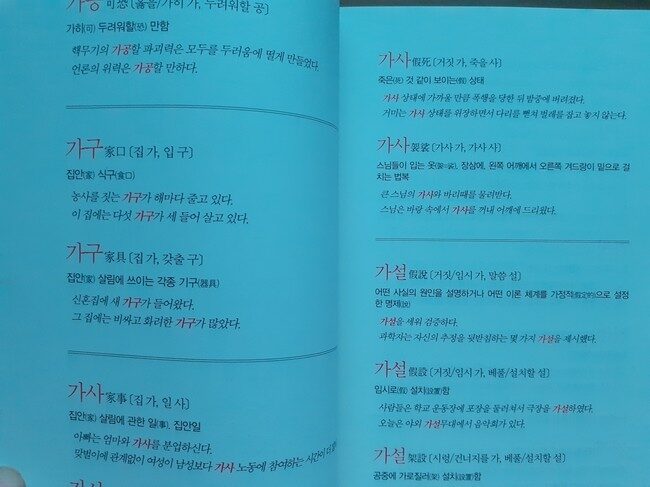 가공 可恐 [옳을/가히 가, 두려워할 공]
가히(可) 두려워할(恐) 만함
핵무기의 가공할 파괴력은 모두를 두려움에 떨게 만들었다.
언론의 위력은 가공할 만하다.
가구 家口 [집 가, 입 구]
집안(家) 식구(食口)
농사를 짓는 가구가 해마다 줄고 있다.
이 집에는 다섯 가구가 세 들어 살고 있다.
가구 家具 [집 가, 갖출 구]
집안(家) 살림에 쓰이는 각종 기구(器具)
신혼집에 새 가구가 들어왔다.
그 집에는 비싸고 화려한 가구가 많았다.
가사 家事 [집 가, 일 사]
집안(家) 살림에 관한 일(事). 집안일
아빠는 엄마와 가사를 분업하신다.
맞벌이에 관계없이 여성이 남성보다 가사 노동에 참여하는 시간이 더
가사 假死 [거짓 가, 죽을 사]
죽은(死) 것 같이 보이는(假) 상태
가사 상태에 가까울 만큼 폭행을 당한 뒤 밤중에 버려졌다.
거미는 가사 상태를 위장하면서 다리를 뻗쳐 벌레를 잡고 놓지 않는다.
가사 袈裟 [가사 가, 가사 사]
스님들이 입는 옷(袈=裟). 장삼에, 왼쪽 어깨에서 오른쪽 겨드랑이 밑으로 걸
치는 법복
큰스님의 가사와 바리때를 물려받다.
스님은 바랑 속에서 가사를 꺼내 어깨에 드리웠다.
가설 假說 [거짓/임시 가, 말씀 설]
어떤 사실의 원인을 설명하거나 어떤 이론 체계를 가정적(假定的)으로 설정
한 명제(說)
가설을 세워 검증하다.
과학자는 자신의 추정을 뒷받침하는 몇 가지 가설을 제시했다.
가설 假設 [거짓/임시 가, 베풀/설치할 설]
임시로(假) 설치(設置)함
사람들은 학교 운동장에 포장을 둘러쳐서 극장을 가설하였다.
오늘은 야외 가설무대에서 음악회가 있다.
가설 架設 [시렁/건너지를 가, 베풀/설치할 설]
공중에 가로질러(架) 설치(設置)함